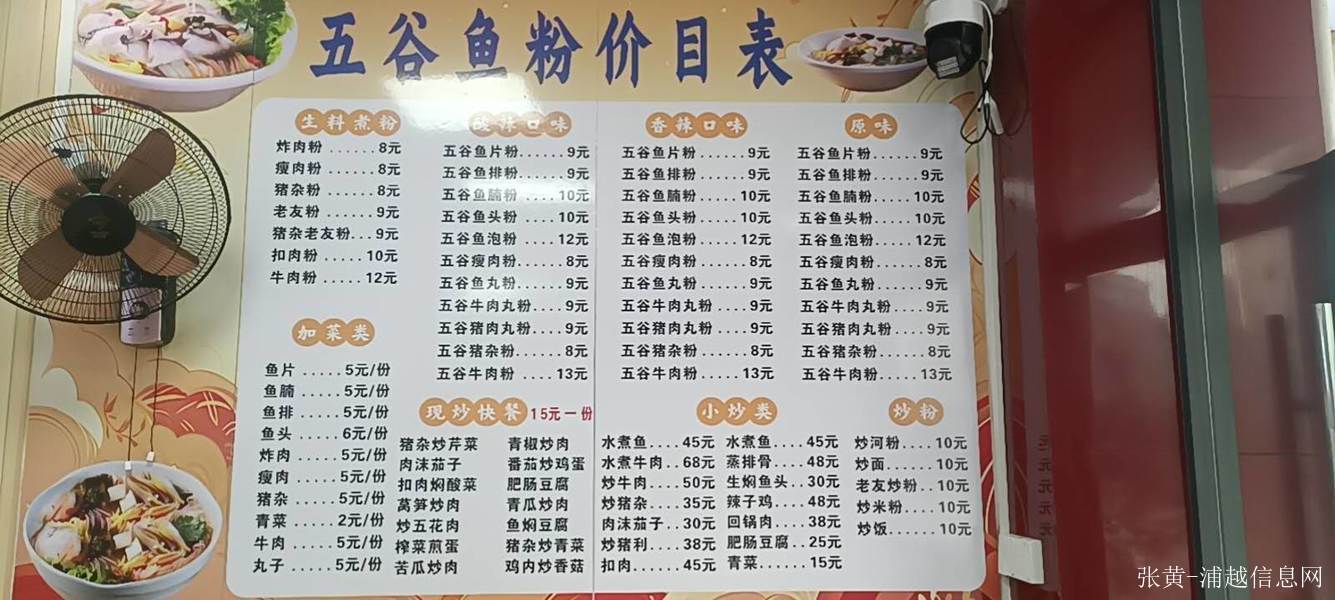 五谷鱼粉价目表
生料煮粉
炸肉粉......8元
瘦肉粉......8元
猪杂粉......8元
老友粉......9元
猪杂老友粉...9元
扣肉粉.....10元
牛肉粉.....12元
加菜类
鱼片.....5元/份
鱼腩.....5元/份
鱼排.....5元/份
鱼头.....6元/份
炸肉.....5元/份
瘦肉.....5元/份
猪杂.....5元/份
青菜.....2元/份
牛肉.....5元/份
丸子.....5元/份
酸辣口味
五谷鱼片粉......9元
五谷鱼排粉......9元
五谷鱼腩粉....10元
五谷鱼头粉....10元
五谷鱼泡粉....12元
五谷瘦肉粉......8元
五谷鱼丸粉......9元
五谷牛肉丸粉...9元
五谷猪肉丸粉....9元
五谷猪杂粉......8元
五谷牛肉粉....13元
香辣口味
五谷鱼片粉......9元
五谷鱼排粉......9元
五谷鱼腩粉.....10元
五谷鱼头粉.....10元
五谷鱼泡粉.....12元
五谷瘦肉粉......8元
五谷鱼丸粉......9元
五谷牛肉丸粉...9元
五谷猪肉丸粉...9元
五谷猪杂粉......8元
五谷牛肉粉.....13元
原味
五谷鱼片粉......9元
五谷鱼排粉......9元
五谷鱼腩粉.....10元
五谷鱼头粉.....10元
五谷鱼泡粉.....12元
五谷瘦肉粉......8元
五谷鱼丸粉......9元
五谷牛肉丸粉...9元
五谷猪肉丸粉...9元
五谷猪杂粉......8元
五谷牛肉粉.....13元
现炒快餐 15元一份
猪杂炒芹菜 青椒炒肉
肉沫茄子 番茄炒鸡蛋
扣肉焖酸菜 肥肠豆腐
莴笋炒肉 青瓜炒肉
炒五花肉 鱼焖豆腐
榨菜煎蛋 猪杂炒青菜
苦瓜炒肉 鸡内炒香菇
小炒类
水煮鱼....45元 水煮鱼....45元
水煮牛肉..68元 蒸排骨....48元
炒牛肉....50元 生焖鱼头..30元
炒猪杂....35元 辣子鸡....48元
肉沫茄子..30元 回锅肉....38元
炒猪利....38元 肥肠豆腐..25元
扣肉......45元 青菜......15元
炒粉
炒河粉....10元
炒面......10元
老友炒粉..10元
炒米粉....10元
炒饭......10元
张黄-浦越信息网